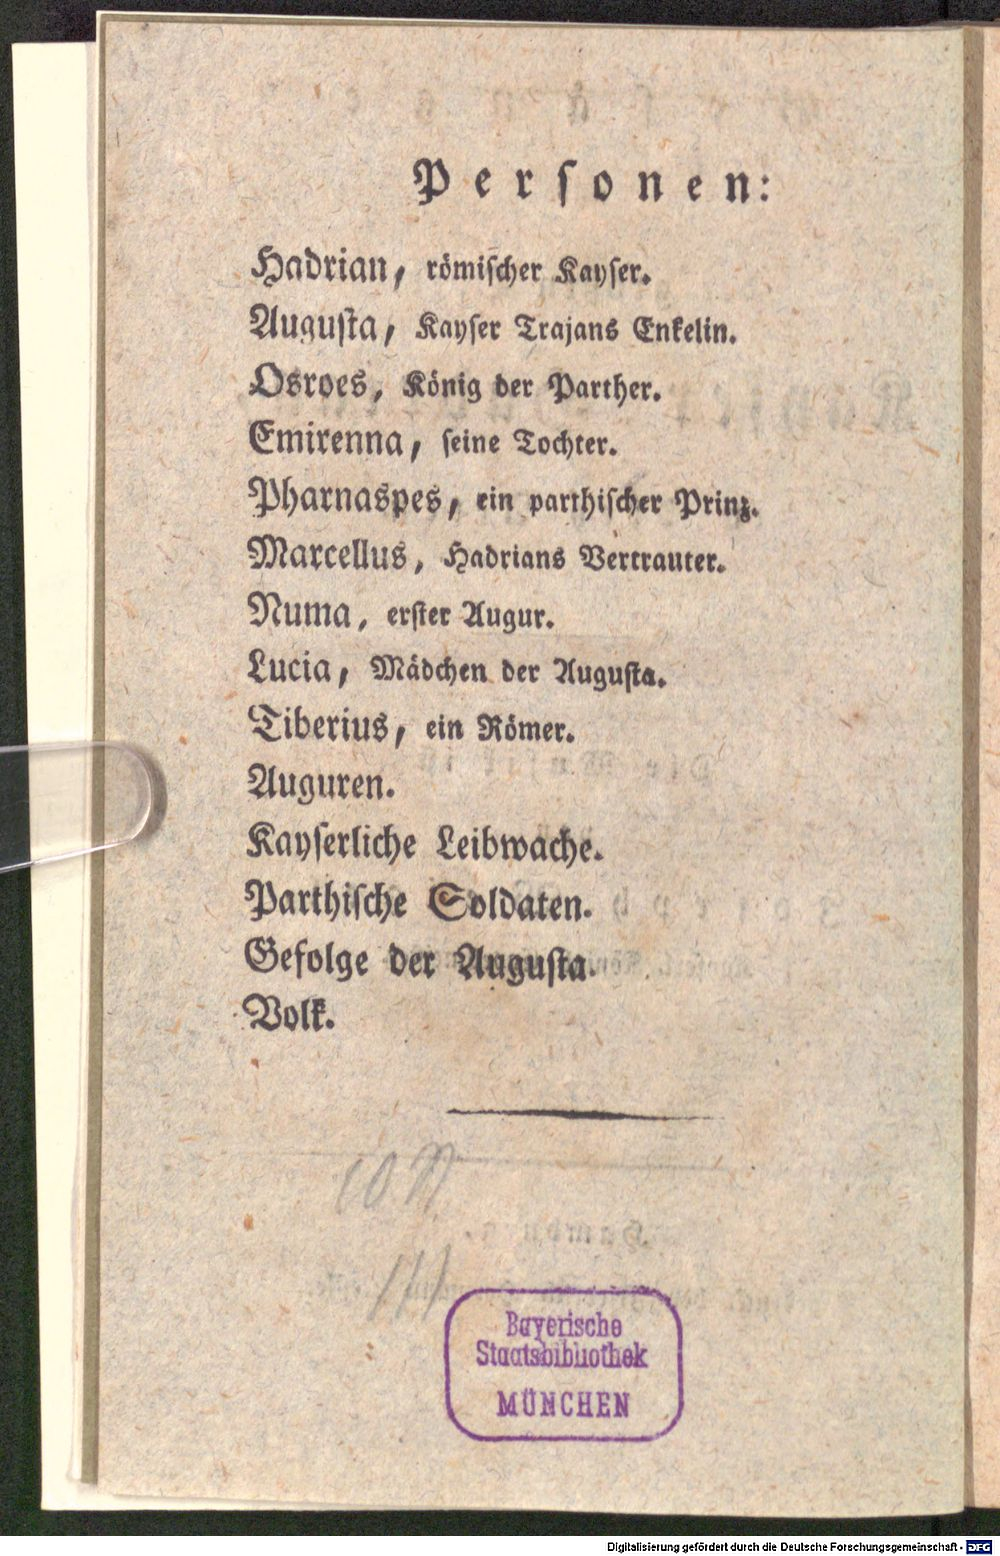 Personen:
Hadrian, römischer Kayser.
Augusta, Kayser Trajans Enkelin.
Osroes, König der Parther.
Emirenna, seine Tochter.
Pharnaspes, ein parthischer Prinz.
Marcellus, Hadrians Vertrauter.
Numa, erster Augur.
Lucia, Mädchen der Augusta.
Tiberius, ein Römer.
Auguren.
Kayserliche Leibwache.
Parthische Soldaten.
Gefolge der Augusta.
Volk.
Bayerische
Staatsbibliothek
MÜNCHEN
Digitalisierung gefördert durch die Deutsche Forschungsgemeinschaft - DFG